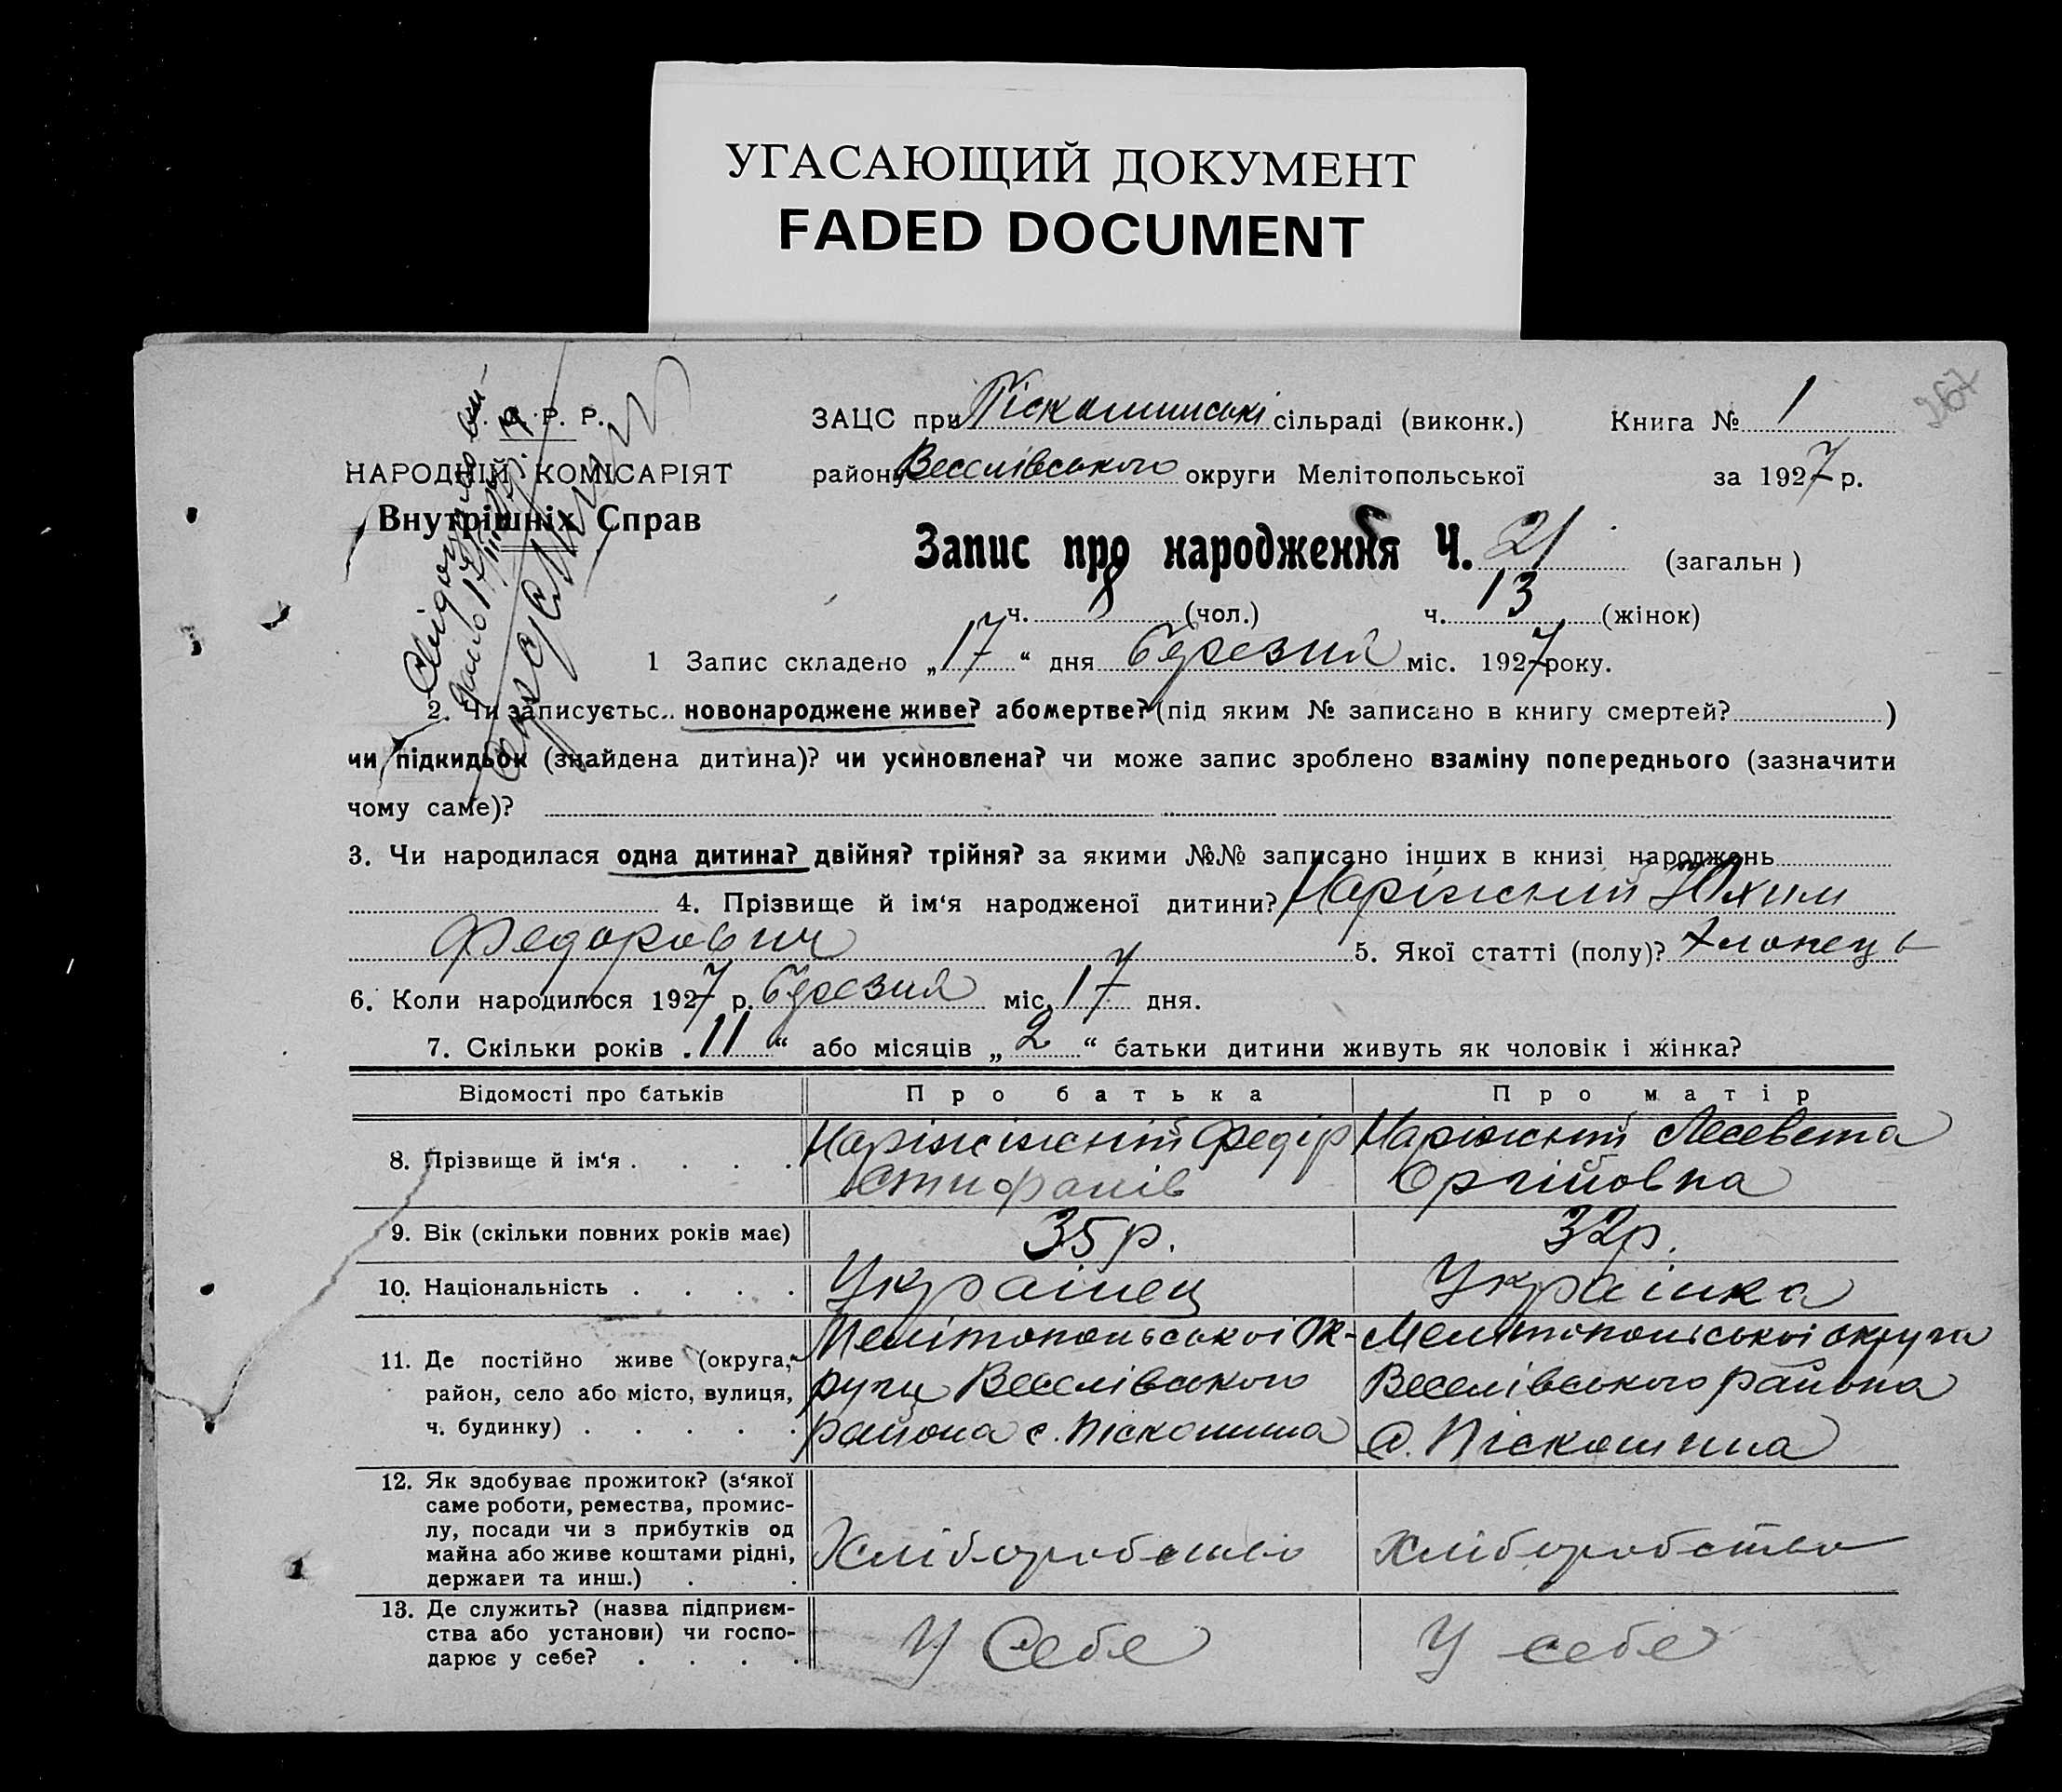 УГАСАЮЩИЙ ДОКУМЕНТ
FADED DOCUMENT
267
Р. Р.
НАРОДНІЙ КОМІСАРІЯТ
Внутрішніх Справ
ЗАЦС при Піскошинські сільраді (виконк.) Книга № 1
району Веселівського округи Мелітопольської за 1927 р.
Запис про народження Ч. 21 (загальн)
ч. 8 (чол.) ч. 13 (жінок)
1 Запис складено „17“ дня березня міс. 1927 року.
2. Чи записуєтьс.. новонароджене живе? або мертве? (під яким № записано в книгу смертей? )
чи підкидьок (знайдена дитина)? чи усиновлена? чи може запис зроблено взаміну попереднього (зазначити
чому саме)?
3. Чи народилася одна дитина? двійня? трійня? за якими №№ записано інших в книзі народжень
4. Прізвище й ім‘я народженої дитини? Наріжний Юхим
Федорович 5. Якої статті (полу)? хлопець
6. Коли народилося 1927 р. березня міс. 17 дня.
7. Скільки років „11“ або місяців „2“ батьки дитини живуть як чоловік і жінка?
Відомості про батьків Про батька Про матір
8. Прізвище й ім‘я . . . . Федір
9. Вік (скільки повних років має) 35 р. 32 р.
10. Національність . . . . Українец Українка
11. Де постійно живе (округа, район, село або місто, вулиця, ч. будинку) . . . . .
Мелітопольської Ок-
руги Веселівського
района с. Піскошина
Мелитопольської округи
Веселівського района
с. Піскошина
12. Як здобуває прожиток? (з‘якої
саме роботи, ремества, промис-
лу, посади чи з прибутків од
майна або живе коштами рідні,
держави та инш.) . .
Хліборобство хліборобство
13. Де служить? (назва підприєм-
ства або установи) чи госпо-
дарює у себе? . . . .
У Себе У себе